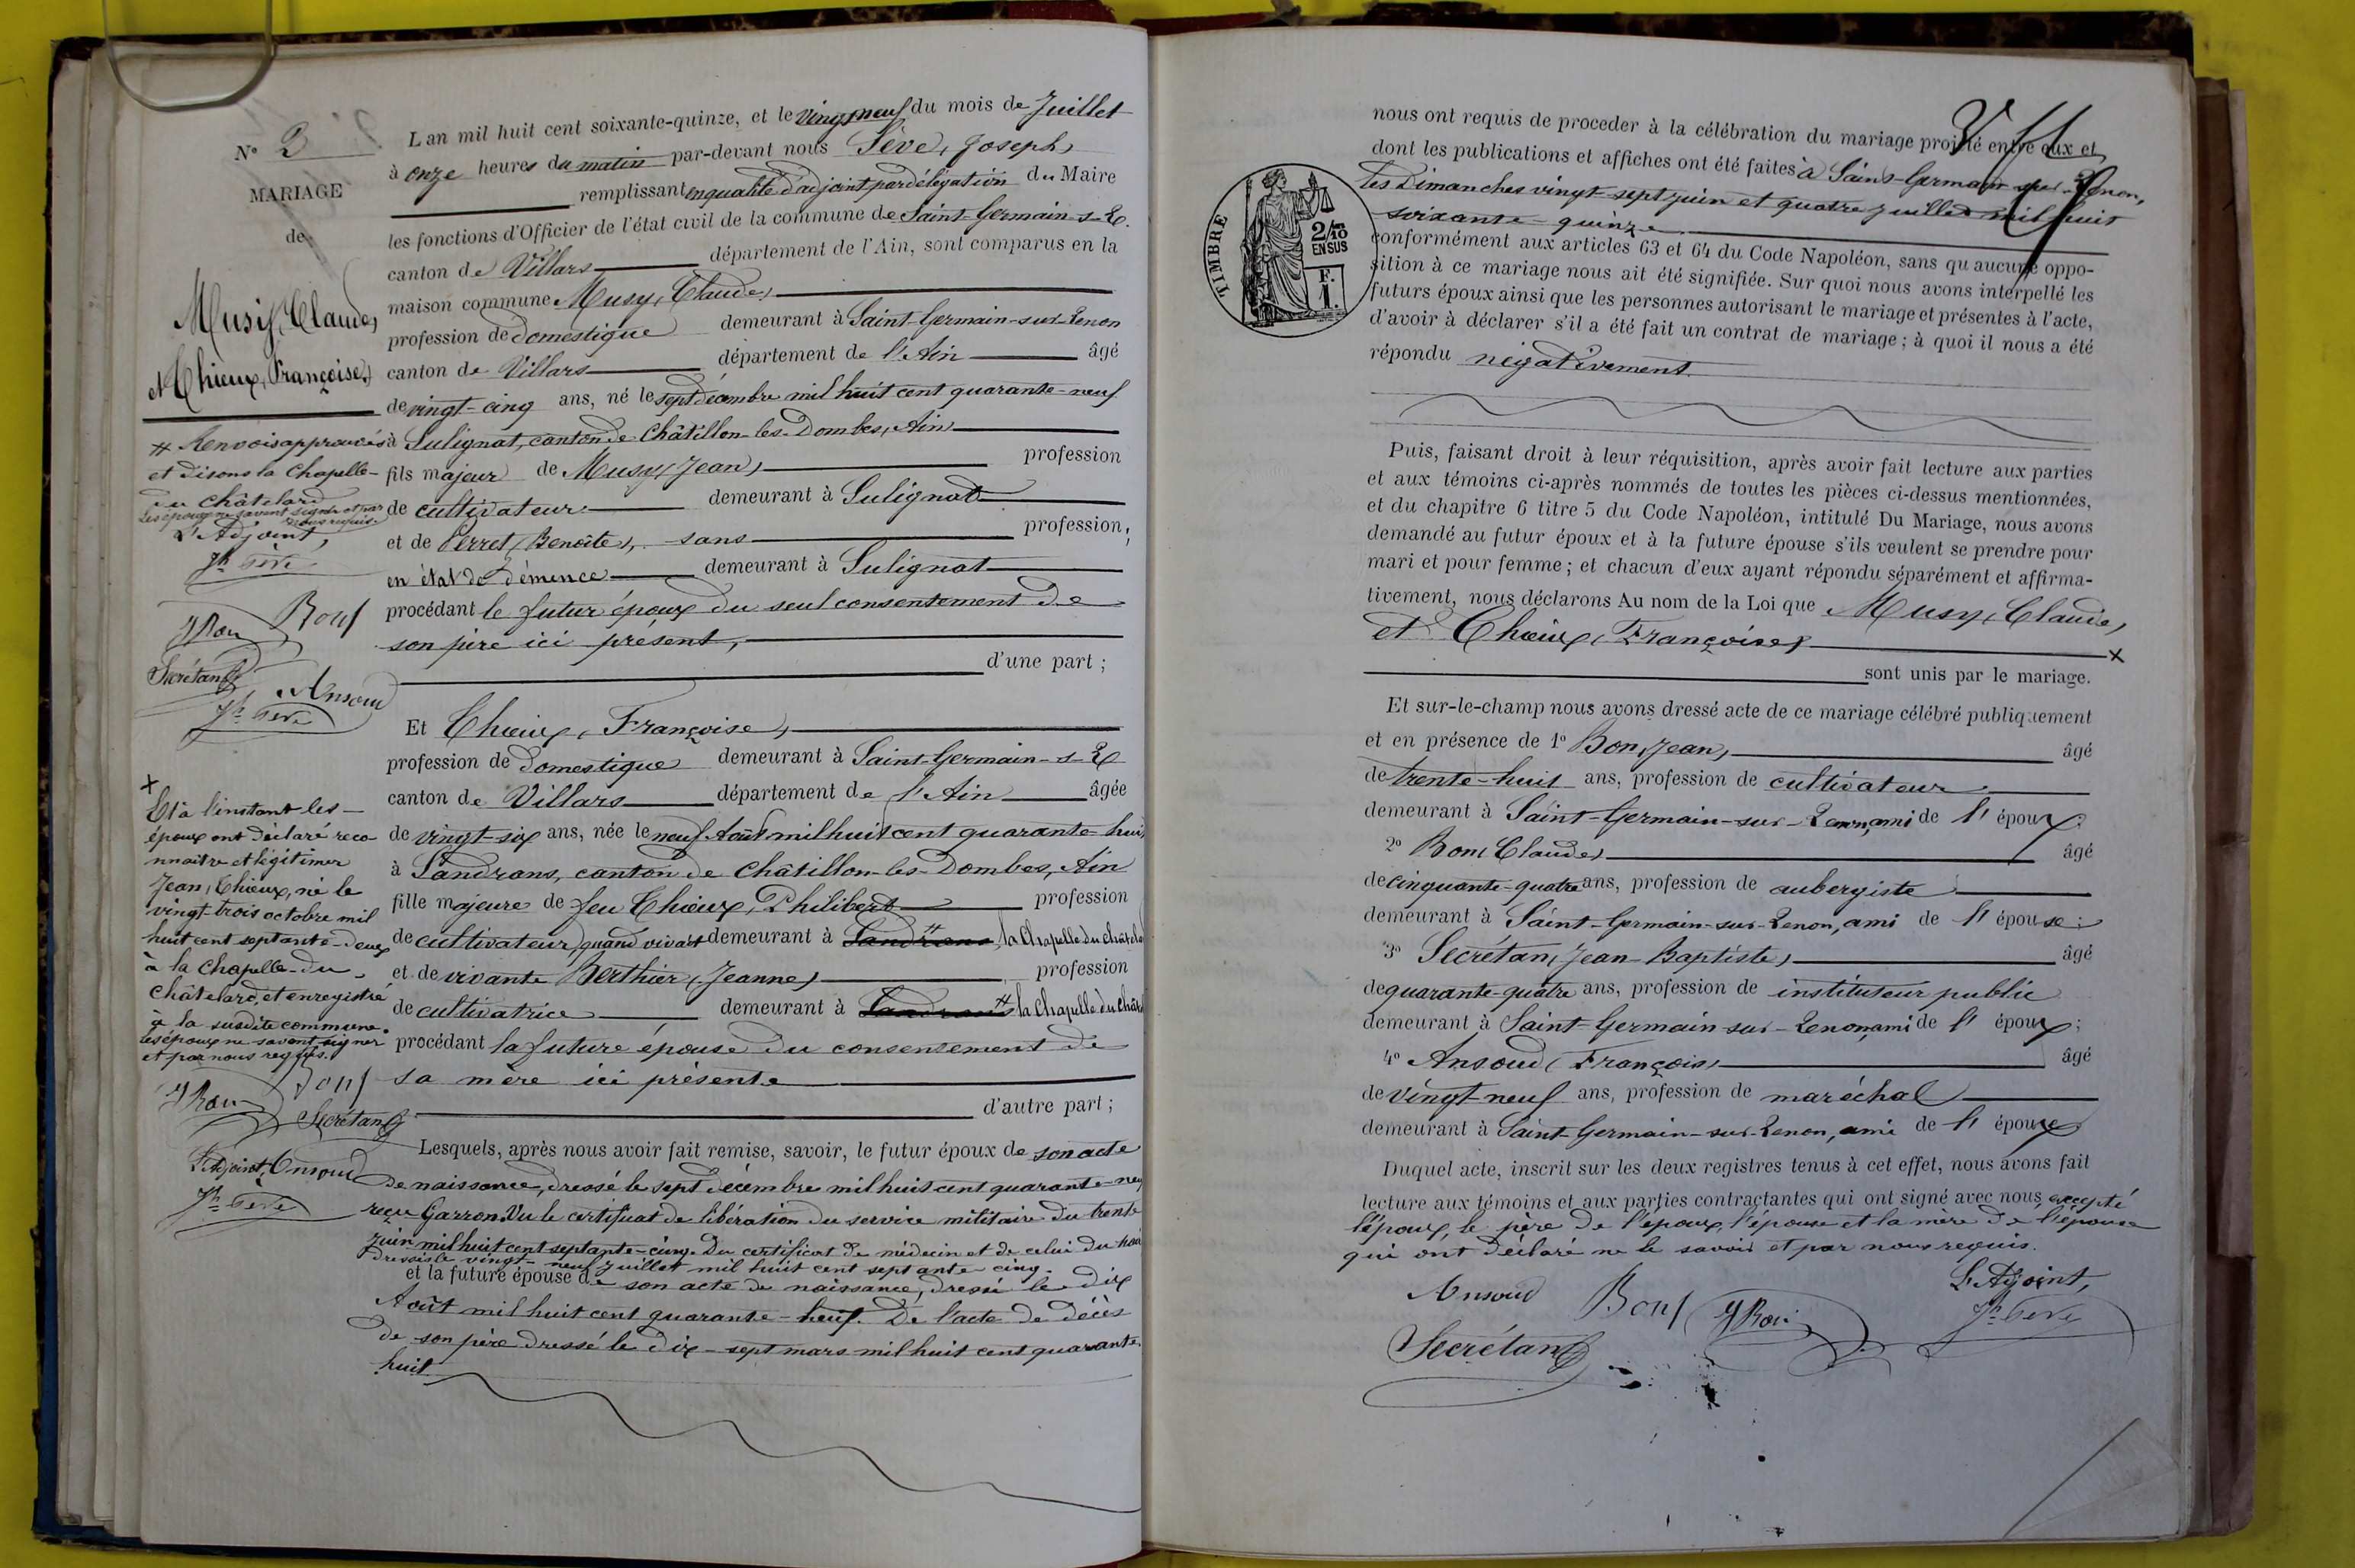 N° 3
MARIAGE
de
Musy, Claude,
et Chieux, Françoise,
# Renvois approuvés
et disons la Chapelle-
du Châtelard
Les époux ne savent signer et par
nous requis.
L'Adjoint,
Jh Sève
Bon
Secrétan
Ansoud
Jh Sève
+
Et à l'instant les
époux ont déclaré reco-
nnaître et légitimer
Jean, Chieux, né le
vingt-trois octobre mil
huit cent septante-deux
à la Chapelle-du-
Châtelard, et enregistré
à la susdite commune.
Les époux ne savent signer
et par nous requis.
Bon
Secrétan
L'Adjoint, Ansoud
Jh Sève
L'an mil huit cent soixante-quinze, et le vingt neuf du mois de Juillet
à onze heures du matin par-devant nous Sève, Joseph,
remplissant en qualité d'adjoint par délégation du Maire
les fonctions d'Officier de l'état civil de la commune de Saint-Germain-s-R.
canton de Villars département de l'Ain, sont comparus en la
maison commune Musy, Claude,
profession de domestique demeurant à Saint-Germain-sur-Renon
canton de Villars département de l'Ain âgé
de vingt-cinq ans, né le sept décembre mil huit cent quarante-neuf
à Sulignat, canton de Châtillon-les-Dombes, Ain
fils majeur de Musy, Jean, profession
de cultivateur demeurant à Sulignat
et de Perret, Benoîte, sans profession,
en état de démence demeurant à Sulignat
procédant le futur époux du seul consentement de
son père ici présent,
d'une part ;
Et Chieux, Françoise,
profession de domestique demeurant à Saint-Germain-s-R
canton de Villars département de l'Ain âgée
de vingt-six ans, née le neuf Août mil huit cent quarante-huit
à Sandrans, canton de Châtillon-les-Dombes, Ain
fille majeure de feu Chieux, Philibert profession
de cultivateur, quand vivait demeurant à Sandrans # la Chapelle du Châtela
et de vivante Berthier, Jeanne, profession
de cultivatrice demeurant à Sandrans # la Chapelle du Châte
procédant la future épouse du consentement de
sa mère ici présente
d'autre part ;
Lesquels, après nous avoir fait remise, savoir, le futur époux de son acte
de naissance, dressé le sept décembre mil huit cent quarante-neuf
reçu Garron. Vu le certificat de libération du service militaire du trente
juin mil huit cent septante-cinq. Du certificat de médecin et de celui du
dressés le vingt-neuf juillet mil huit cent septante-cinq.
et la future épouse de son acte de naissance, dressé le dix
Août mil huit cent quarante-huit. De l'acte de décès
de son père dressé le dix-sept mars mil huit cent quarante
huit
nous ont requis de procéder à la célébration du mariage projeté entre eux et
dont les publications et affiches ont été faites à Saint-Germain-sur-Renon,
les Dimanches vingt-sept juin et quatre juillet mil huit
soixante-quinze
TIMBRE
2/10
EN SUS
F.
1.
conformément aux articles 63 et 64 du Code Napoléon, sans qu'aucune oppo-
sition à ce mariage nous ait été signifiée. Sur quoi nous avons interpellé les
futurs époux ainsi que les personnes autorisant le mariage et présentes à l'acte,
d'avoir à déclarer s'il a été fait un contrat de mariage ; à quoi il nous a été
répondu négativement
Puis, faisant droit à leur réquisition, après avoir fait lecture aux parties
et aux témoins ci-après nommés de toutes les pièces ci-dessus mentionnées,
et du chapitre 6 titre 5 du Code Napoléon, intitulé Du Mariage, nous avons
demandé au futur époux et à la future épouse s'ils veulent se prendre pour
mari et pour femme ; et chacun d'eux ayant répondu séparément et affirma-
tivement, nous déclarons Au nom de la Loi que Musy, Claude,
et Chieux, Françoise,
+
sont unis par le mariage.
Et sur-le-champ nous avons dressé acte de ce mariage célébré publiquement
et en présence de 1° Bon, Jean, âgé
de trente-huit ans, profession de cultivateur
demeurant à Saint-Germain-sur-Renon, ami de l' époux ;
2° Bon, Claude, âgé
de cinquante-quatre ans, profession de aubergiste
demeurant à Saint-Germain-sur-Renon, ami de l' épouse ;
3° Secrétan, Jean-Baptiste, âgé
de quarante-quatre ans, profession de instituteur public
demeurant à Saint-Germain-sur-Renon, ami de l' époux ;
4° Ansoud, François, âgé
de vingt neuf ans, profession de maréchal
demeurant à Saint-Germain-sur-Renon, ami de l' épouse
Duquel acte, inscrit sur les deux registres tenus à cet effet, nous avons fait
lecture aux témoins et aux parties contractantes qui ont signé avec nous excepté
l'époux, le père de l'époux, l'épouse et la mère de l'épouse
qui ont déclaré ne le savoir et par nous requis.
L'Adjoint,
Ansoud Bon Jh Sève
Secrétan